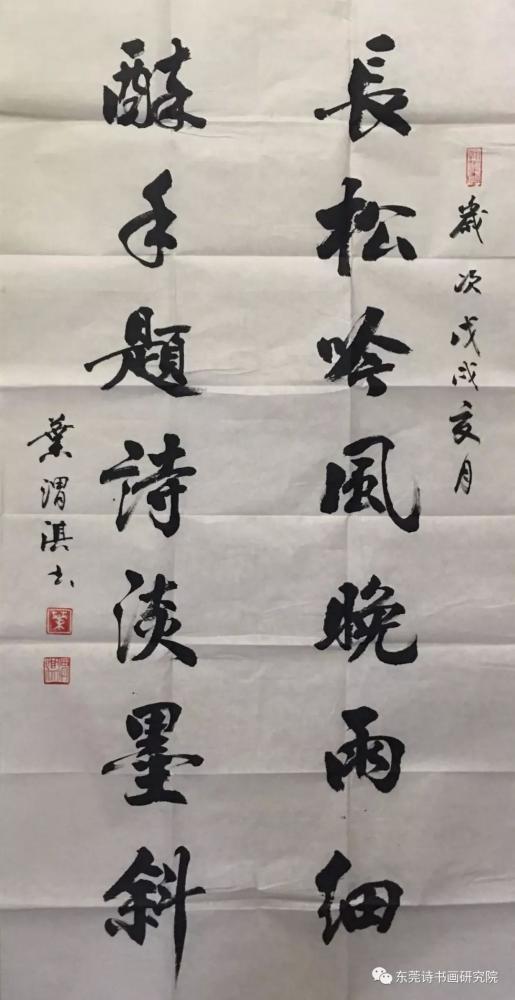 歲次戊戌亥月
長松吟風晚雨細
醉手題詩淡墨斜
葉渭淇书
葉
东莞诗书画研究院